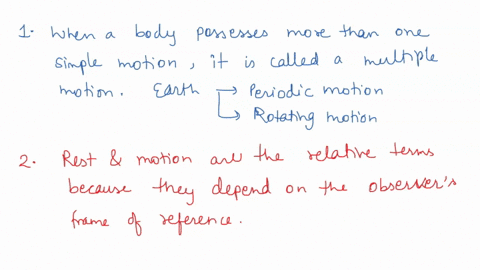 1. When a body possesses more than one
simple motion, it is called a multiple
motion. Earth → Periodic motion
↳ Rotating motion
2. Rest & motion are the relative terms
because they depend on the observer's
frame of reference.